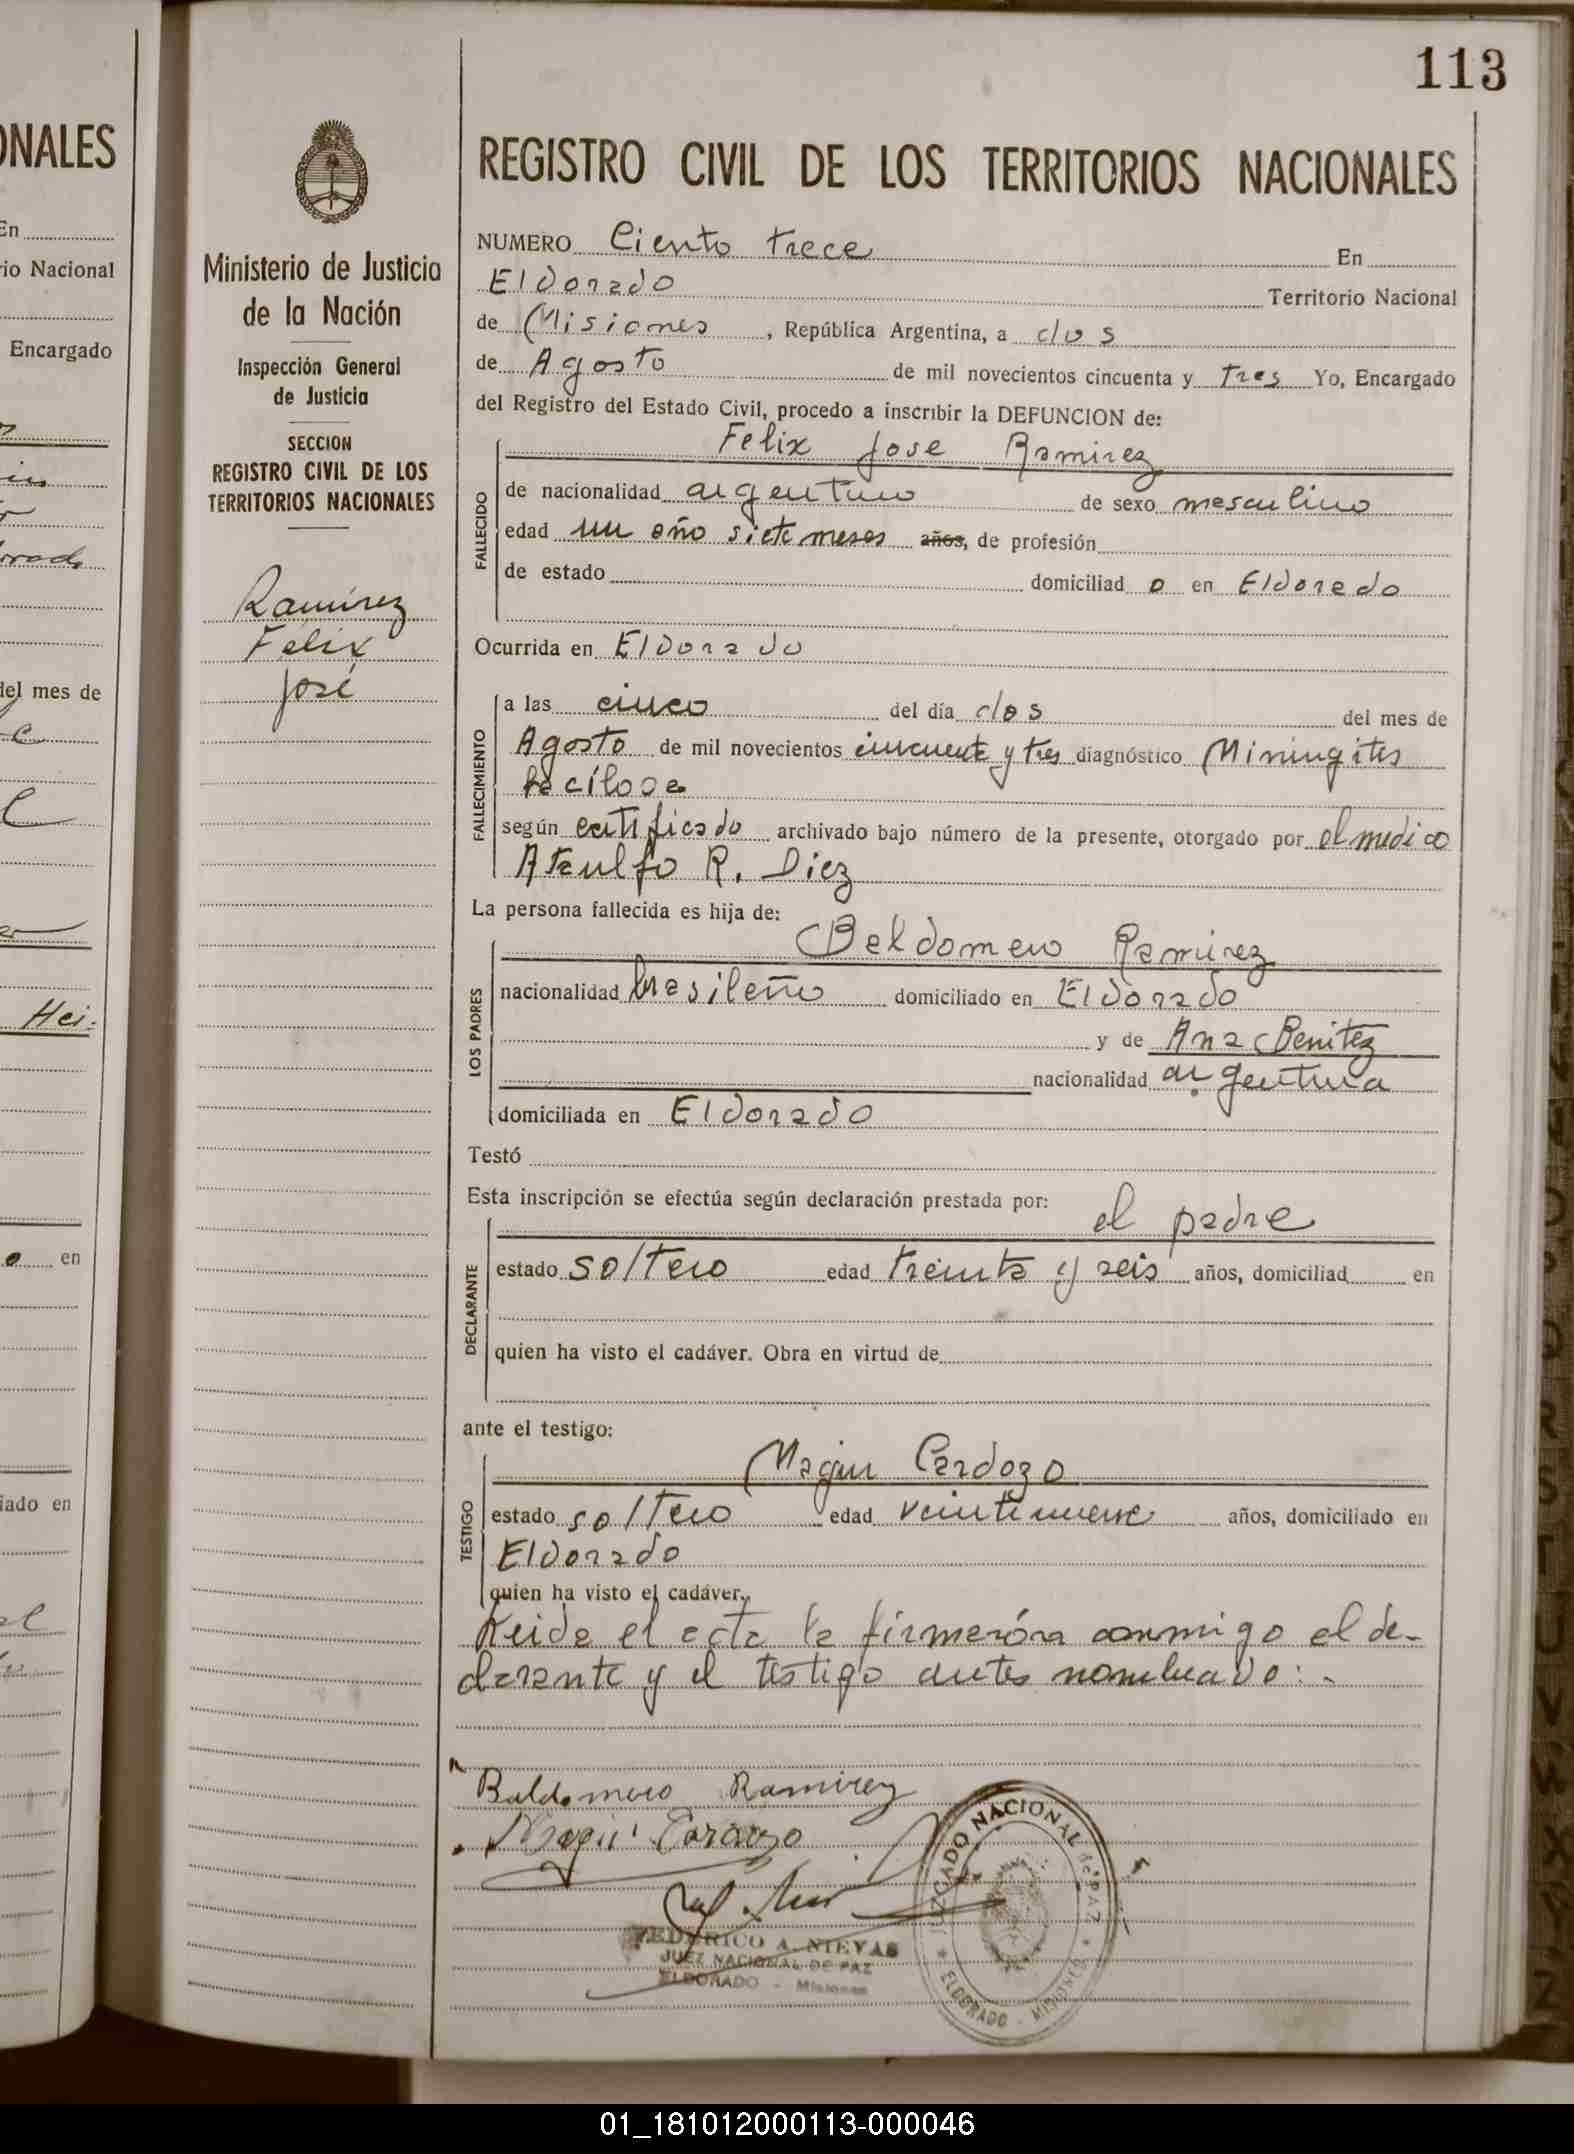 113
ONALES
En
io Nacional
Encargado
del mes de
Hei:
o en
iado en
Ministerio de Justicia
de la Nación
Inspección General
de Justicia
SECCION
REGISTRO CIVIL DE LOS
TERRITORIOS NACIONALES
Ramírez
Félix
José
REGISTRO CIVIL DE LOS TERRITORIOS NACIONALES
NUMERO Ciento trece En
Eldorado Territorio Nacional
de Misiones, República Argentina, a dos
de Agosto de mil novecientos cincuenta y tres Yo, Encargado
del Registro del Estado Civil, procedo a inscribir la DEFUNCION de:
Felix Jose Ramirez
FALLECIDO
de nacionalidad argentino de sexo masculino
edad un año siete meses años, de profesión
de estado domiciliad o en Eldorado
Ocurrida en Eldorado
FALLECIMIENTO
a las cinco del día dos del mes de
Agosto de mil novecientos cincuenta y tres diagnóstico Miningites
bacilosa
según certificado archivado bajo número de la presente, otorgado por el medico
Ataulfo R. Diez
La persona fallecida es hija de:
Baldomero Ramirez
LOS PADRES
nacionalidad brasileño domiciliado en Eldorado
y de Ana Benitez
nacionalidad argentina
domiciliada en Eldorado
Testó
Esta inscripción se efectúa según declaración prestada por:
el padre
DECLARANTE
estado soltero edad treinta y seis años, domiciliad en
quien ha visto el cadáver. Obra en virtud de
ante el testigo:
Magin Cardozo
TESTIGO
estado soltero edad veintinueve años, domiciliado en
Eldorado
quien ha visto el cadáver.
Leida el acta la firmarón conmigo el de-
clarante y el testigo antes nombrado:-
Baldomero Ramirez
Magin Cardozo
FEDERICO A. NIEVAS
JUEZ NACIONAL DE PAZ
ELDORADO - Misiones
JUZGADO NACIONAL de PAZ
ELDORADO - Misiones
01_181012000113-000046